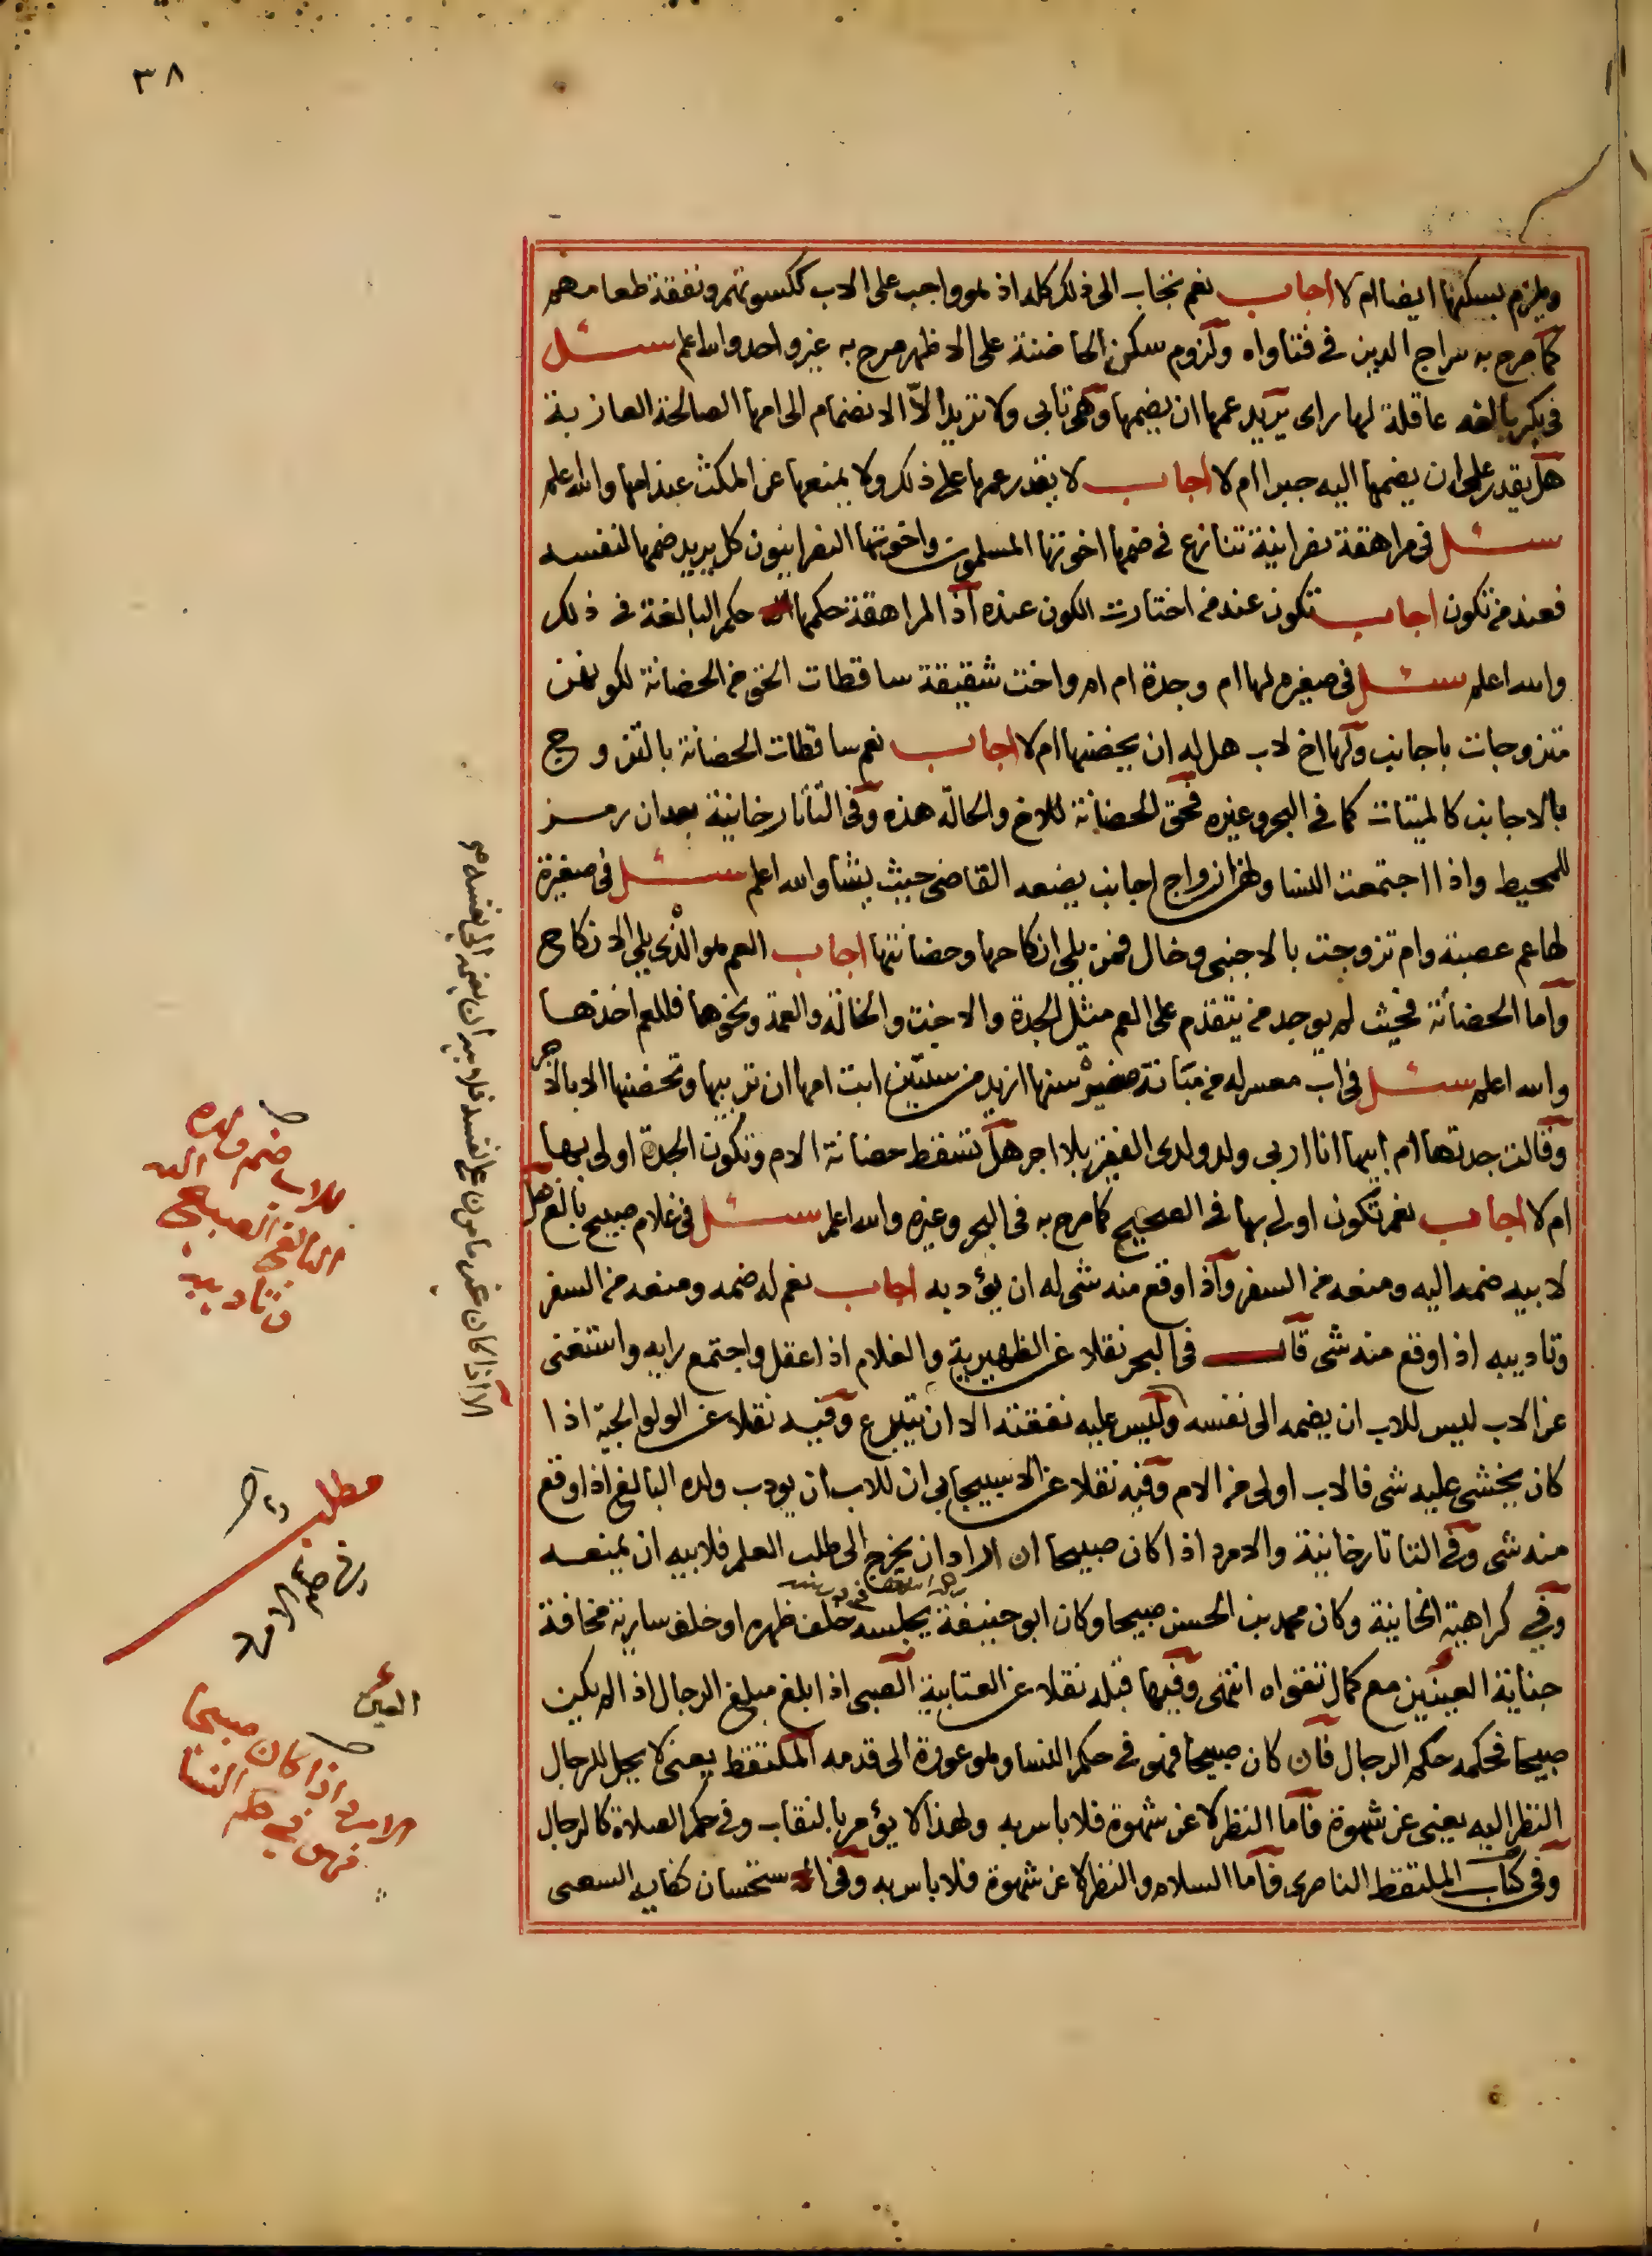 ٣٨
ويلزم بسكنها ايضا ام لا اجاب نعم تجاب الى ذلك كله اذ هو واجب على الاب ككسوتهم ونفقة طعامهم
كما صرح به سراج الدين في فتاواه ولزوم سكن الحاضنة على الاظهر صرح به غير واحد والله اعلم سئل
في بكر بالغه عاقلة لها راى يريد عمها ان يضمها وهي تابى ولا تريد الّا الانضمام الى امها الصالحة العازبة
هل يقدر على ان يضمها اليه جبرا ام لا اجاب لا يقدر عمها على ذلك ولا يمنعها عن المكث عند امها والله اعلم
سئل في مراهقة نصرانية تنازع في ضمها اخوتها المسلمون واخوتها النصرانيون كل يريد ضمها لنفسه
فعند من تكون اجاب تكون عند من اختارت الكون عنده اذ المراهقة حكمها حكم البالغة في ذلك
والله اعلم سئل في صغيره لها ام وجدة ام ام واخت شقيقة ساقطات الحق من الحضانة لكونهن
متزوجات باجانب ولها اخ لاب هل له ان يحضنها ام لا اجاب نعم ساقطات الحضانة بالتزوج
بالاجانب كالميتات كما في البحر وغيره فحق الحضانة للاخ والحالة هذه وفي التاتارخانية بعد ان رمز
للمحيط واذا اجتمعت النسا ولهن ازواج اجانب يضعه القاضى حيث يشا والله اعلم سئل في صغيرة
لها عم عصبة وام تزوجت بالاجنبى وخال فمن يلى انكاحها وحضانتها اجاب العم هو الذى يلى الانكاح
واما الحضانة فحيث لم يوجد من يتقدم على العم مثل الجدة والاخت والخالة والعمة ونحوها فللعم اخذها
والله اعلم سئل في اب معسر له من مبتانة صغيرة سنها ازيد من سنتين ابت امها ان تربيها وتحضنها الا بالاجر
وقالت جدتها ام ابيها انا اربى ولد ولدى الفقير بلا اجر هل تسقط حضانة الام وتكون الجدة اولى بها
ام لا اجاب نعم تكون اولى بها في الصحيح كما صرح به في البحر وغيره والله اعلم سئل في غلام صبيح بالغ هل
لابيه ضمه اليه ومنعه من السفر واذا وقع منه شى له ان يؤدبه اجاب نعم له ضمه ومنعه من السفر
وتاديبه اذا وقع منه شى قال في البحر نقلا عن الظهيرية والغلام اذا عقل واجتمع رايه واستغنى
عن الاب ليس للاب ان يضمه الى نفسه وليس عليه نفقته الا ان يتبرع وفيه نقلا عن الولوالجية اذا
كان يخشى عليه شى فالاب اولى من الام وفيه نقلا عن الاسبيجابى ان للاب ان يودب ولده البالغ اذا وقع
منه شى وفي التاتارخانية والامرد اذا كان صبيحا ان اراد ان يخرج الى طلب العلم فلابيه ان يمنعه
وفي كراهية الخانية وكان محمد بن الحسن صبيحا وكان ابو حنيفة يجلسه خلف ظهره او خلف سارية مخافة
جناية العينين مع كمال تقواه انتهى وفيها قبله نقلا عن العتابية الصبى اذا بلغ مبلغ الرجال اذا لم يكن
صبيحا فحكمه حكم الرجال فان كان صبيحا فهو في حكم النسا وهو عورة الى قدمه الملتقط يعنى لا يحل للرجال
النظر اليه يعنى عن شهوة فاما النظر لا عن شهوة فلا باس به ولهذا لا يؤمر بالنقاب وفي حكم الصلاة كالرجال
وفي كتاب الملتقط الناصرى فاما السلام والنظر لا عن شهوة فلا باس به وفي استحسان كفاية السعبى
الا اذا كان غير مامون على نفسه فلابيه ان يضمه الى نفسه
للاب ضم ولده
البالغ الصبيح اليه
وتاديبه
مطلب
في ضم الامرد
العين
الامرد اذا كان صبيحا
فهو في حكم النسا